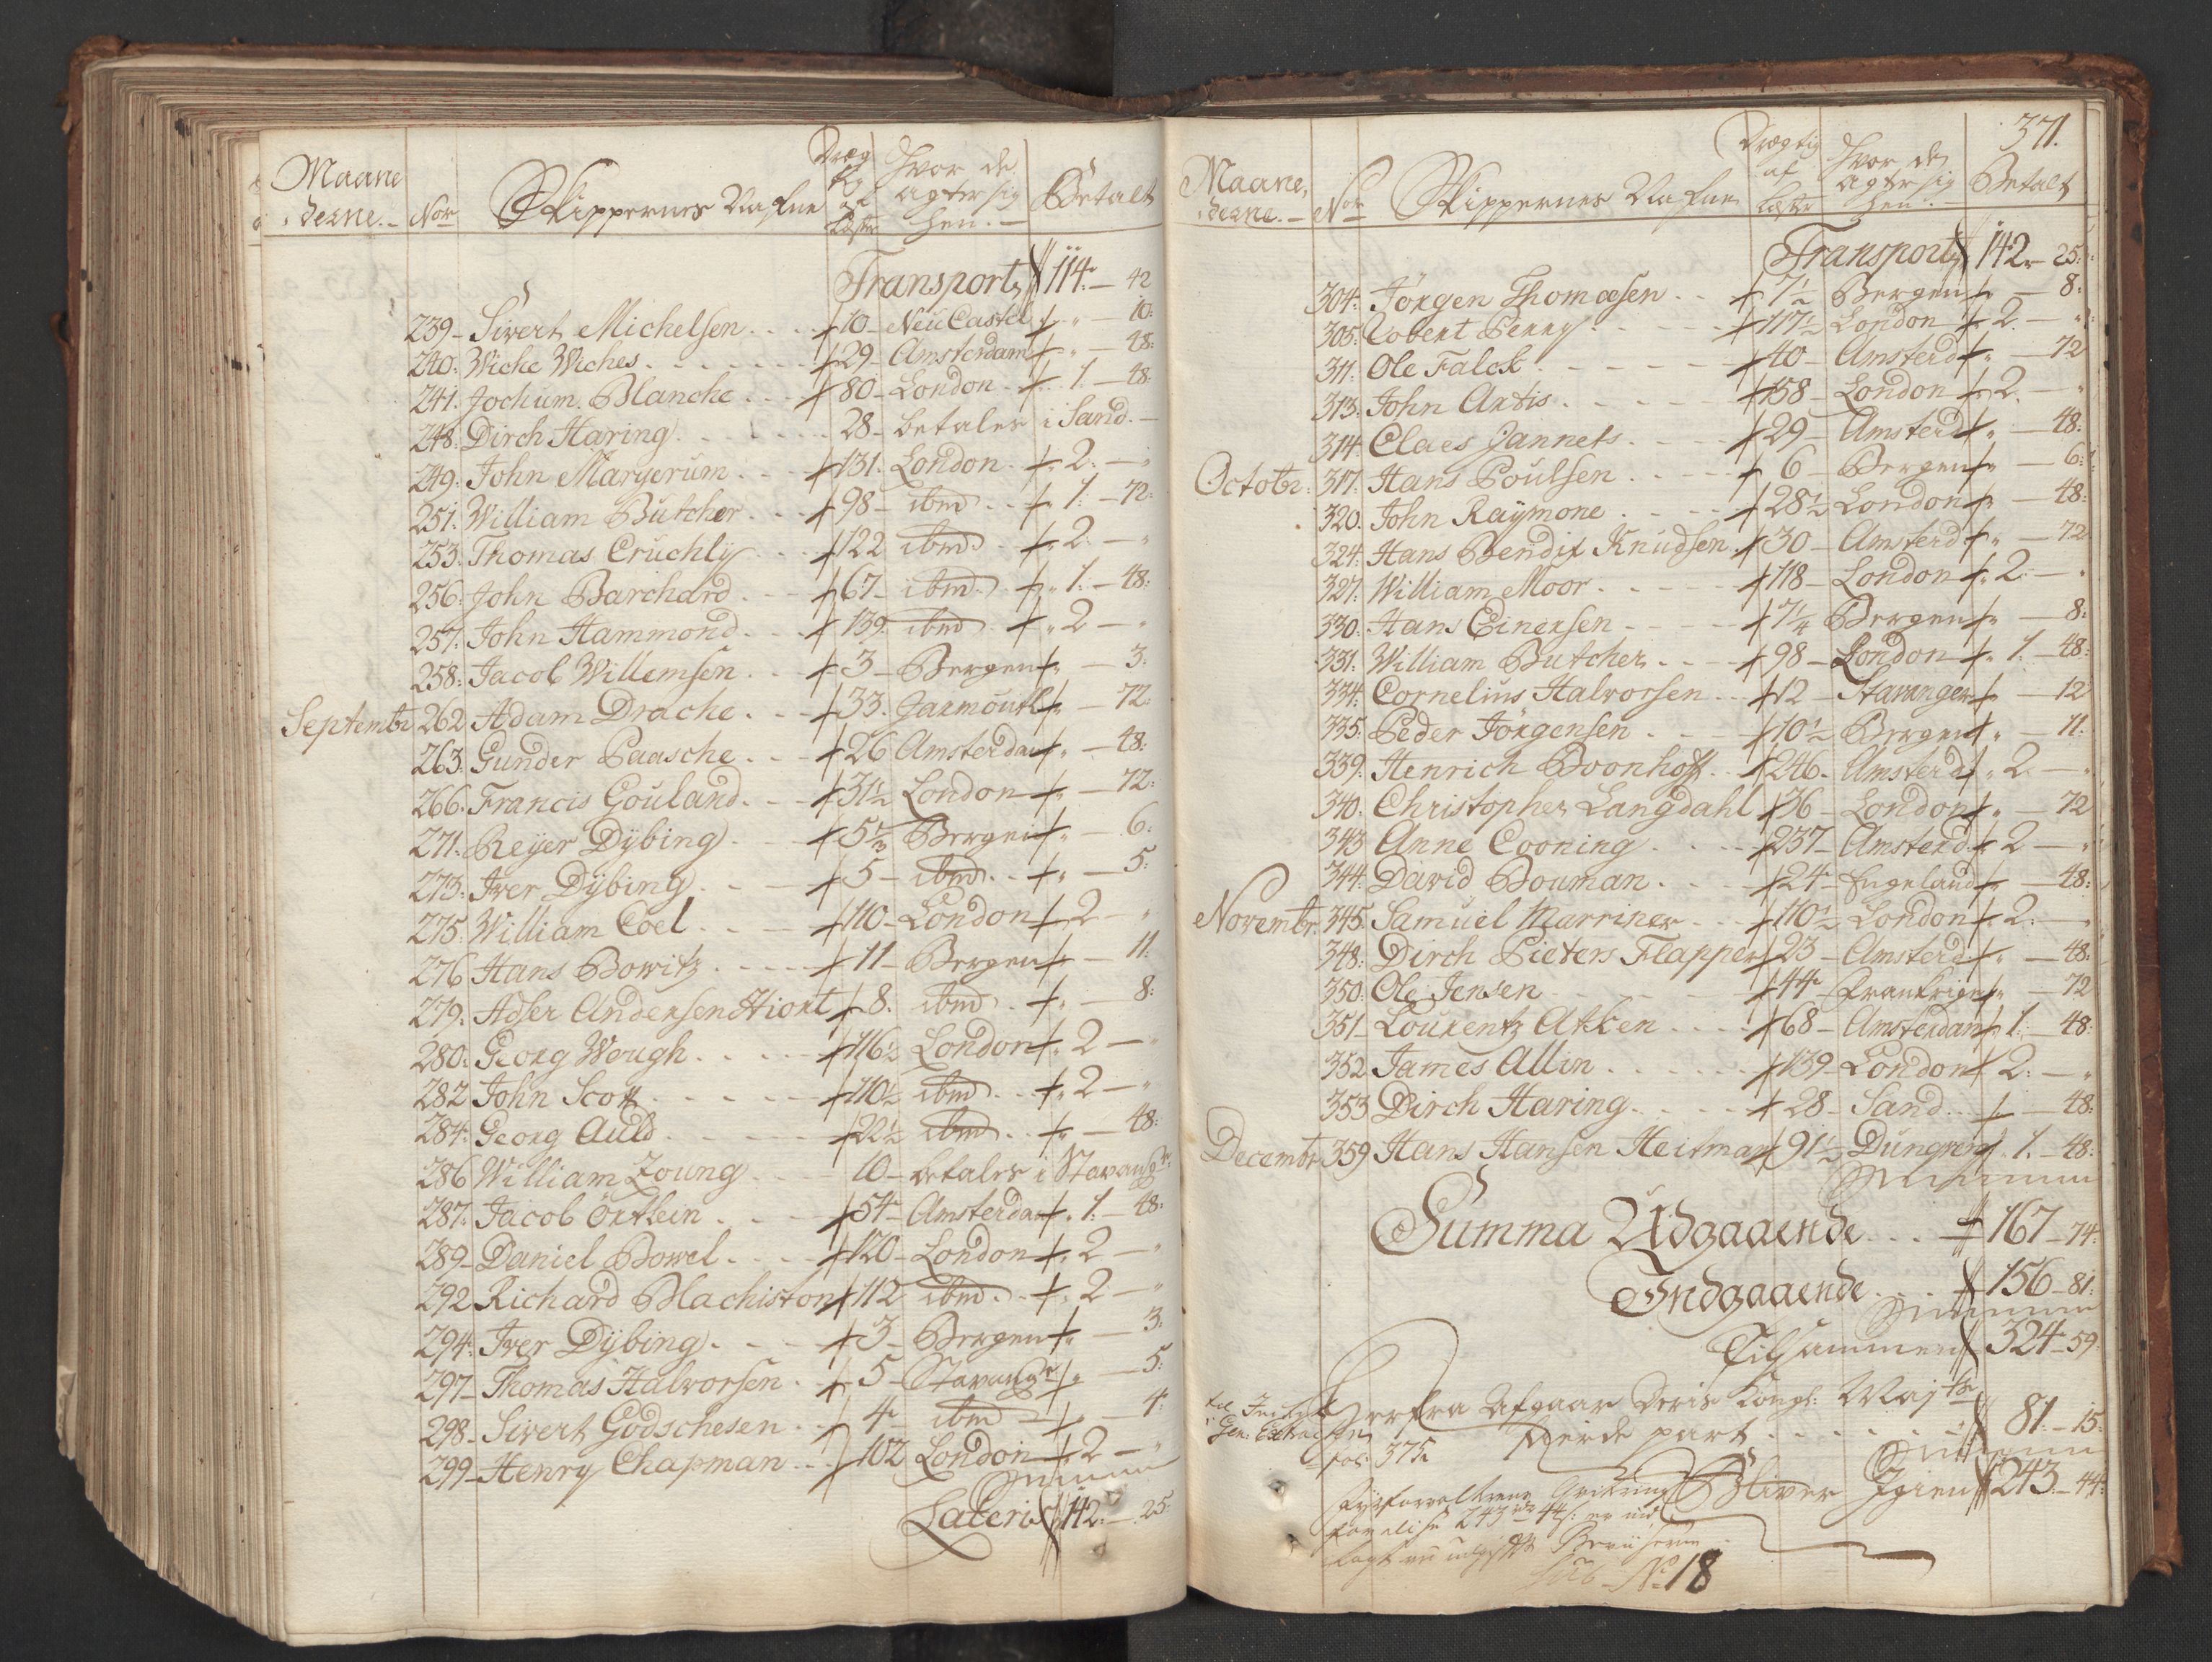 Maane
derne. - Nor Skippernes Nafne Dræg af Læster Hvor de agter sig hen. - Betalt
Transport 114 - 42
239 - Sivert Michelsen . . 10 - Neu Castel " - 10:
240: Wiche Wiches . . . . 29 - Amsterdam " - 48:
241. Jochum Blanche . . 80 - London . 1. - 48:
248: Dirch Haring . . . . 28 - betaler i Sand. -
249: John Margerum . . 131. London . 2. - "
251: William Butcher . . 98 - ibmd . . 1. - 72:
253: Thomas Cruchly . . 122 ibmd . 2. - "
256: John Barchard . . 67 - ibmd . 1: - 48:
257: John Hammond . . 139. ibmd . 2 - "
258: Jacob Willemsen . . 3 - Bergen " - 3:
Septembr 262 Adam Drache . . 33. Jarmouth " - 72:
263: Gunder Paasche . . 26 Amsterdam " - 48:
266: Francis Gouland . . 31½ London " - 72:
271: Reyer Dÿbing . . 5⅔ Bergen " - 6:
273: Iver Dÿbing . . 5 - ibmd . . " - 5:
275: William Coel . . 110 - London 2 - "
276 Hans Bowitz . . . . 11 - Bergen " - 11:
279: Adser Andersen Hiort 8: ibmd . " - 8:
280: Georg Wough . . . 116½ London 2 - "
282 John Scott . . . . 110½ ibmd . . 2 - "
284: Georg Auld . . . . 22½ ibmd . . " - 48:
286 William Zoung . . . 10 - betaler i Stavanger
287: Jacob Örtlein . . . 54 - Amsterdam 1: - 48:
289 - Daniel Bowel . . . 120 - London 2 - "
292 Richard Blachiston 112 ibmd . . 2 - "
294: Iver Dÿbing . . . 3 - Bergen " - 3:
297 - Thomas Halvorsen . 5 - Stavangr " - 5:
298 - Sivert Godschesen . 4 - ibmd " - 4:
299 - Henry Chapman . . 102 London 2 - "
Lateris 142. - 25.
371.
Maane,
derne. - Nor Skippernes Nafne Drægtig af Læster Hvor de agter sig hen. - Betalt
Transport 142 - 25:
304: Jörgen Thomæsen . . 7½ Bergen " - 8:
305: Robert Perry . . . . 117½ London 2. - "
311: Ole Falck . . . . 40 - Amsterd " - 72
313: John Artis . . . . 158 - London 2. - "
314: Claes Jannets . . . 29 - Amsterd " - 48:
Octobr: 317: Hans Poulsen . . . 6 - Bergen " - 6:
320. John Raymone . . . 28½ London " - 48:
324: Hans Bendix Knudsen . 30 - Amsterd " - 72
327: William Moor . . . . 118 - London 2: - "
330: Hans Einersen . . . 7¼ Bergen " - 8:
331: William Butcher . . 98 - London 1: - 48:
334: Cornelius Halvorsen . . 12 - Stavanger " - 12
335: Peder Jörgensen . . 10½ Bergen " - 11:
339: Henrich Boonhoff . . 246 - Amsterd 2. - "
340: Christopher Langdahl 36 - London " - 72
343 Anne Cooning . . . 237 - Amsterd 2 - "
344: David Bouman . . . 24 - Engeland " - 48:
Novembr: 345: Samuel Marriner . . 110½ London 2: - "
348: Dirch Pieters Flapper 23 - Amsterd " - 48:
350: Ole Jensen . . . . 44 - Frankrige " - 72
351 - Lourentz Akken . . . 68 - Amsterdam 1: - 48:
352 James Allin . . . . 139 - London 2: - "
353 Dirch Haring . . . . 28 - Sand . . - 48:
Decembr 359 Hans Hansen Heitman 91½ Dungreng 1. - 48:
Summa Udgaaende . . . 167 - 74:
Indgaaende . . . 156 - 81:
Tilsammen 324 - 59:
Herfra Afgaar Deris Kongl: Mayts
fierde part . . . . 81. - 15:
fol: 375
Bliver Igien 243 - 44:
243 rd 44 s: er
lagt
sub No 18